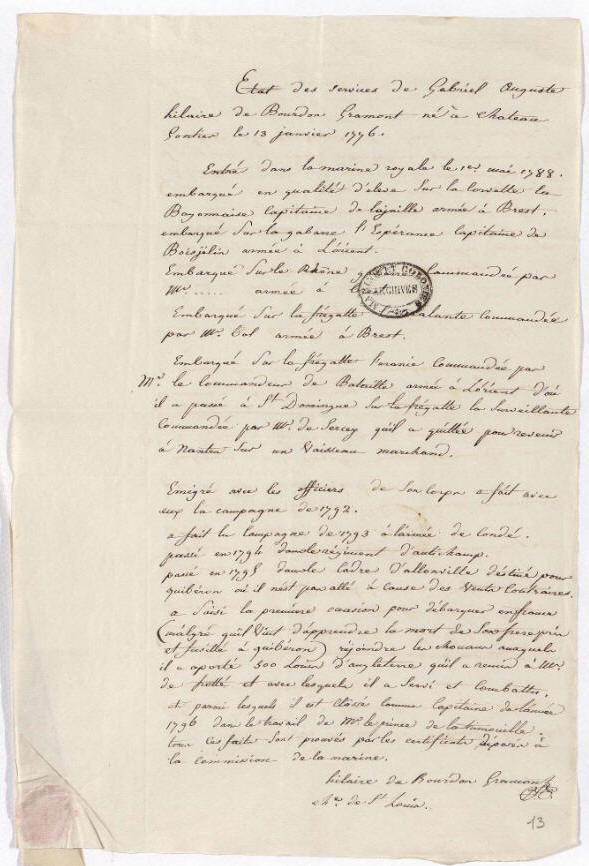 Etat des services de Gabriel Auguste
hilaire de Bourdon Gramont né à Chateau
Gontier le 13 janvier 1776.
Entré dans la marine royale le 1er mai 1788.
embarqué en qualité d'eleve Sur la Corvette la
Bayonnaise Capitaine de armée à Brest.
embarqué Sur la gabare l'Espérance Capitaine de
Boisjélin armée à L'orient.
Embarqué Sur le Rhône Commandée par
Mr ..... armée à
Embarqué Sur la frégatte commandée
par Mr. armée à Brest.
Embarqué Sur la frégatte l'uranie Commandée par
Mr. le Commandeur de Bataille armée à L'orient d'où
il a passé à St Domingue Sur la frégatte la Surveillante
Commandée par Mr. de Sercey qu'il a quittée pour revenir
à Nantes Sur un Vaisseau marchand.
Emigré avec les officiers de Son Corps a fait avec
eux la campagne de 1792.
a fait la Campagne de 1793 à l'armée de Condé.
passé en 1794 dans le régiment d'autichamp.
passé en 1795 dans le Cadre d'allonville déstiné pour
quibéron où il n'est pas allé à Cause des Vents Contraires.
a Saisi la première occasion pour débarquer en france
(malgré qu'il Vint d'apprendre la mort de Son frere pris
et fusillé à quibéron) rejoindre les chouans auxquels
il a aporté 500 Louis d'angleterre qu'il a remis à Mr.
de frotté et avec lesquels il a Servi et Combattu,
et parmi lesquels il est Classé Comme Capitaine de l'année
1796 dans le travail de Mr. le prince de la trimouille.
tous ces faits Sont prouvés par les certificats déposés à
la Commission de la marine.
hilaire de Bourdon Gramont
chr. de St Louis.
MARINE ET COLONIES
ARCHIVES
13